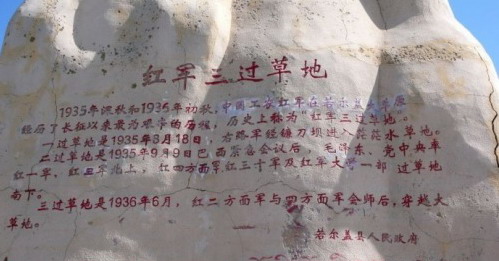 红军三过草地
1935年深秋和1935年初秋,中国工农红军在若尔盖大草原
经历了长征以来最为艰辛的历程,历史上称为“红军三过草地”。
一过草地是1935年8月18日,右路军经腊子坝进入花花水草地。
二过草地是1935年9月9日巴西会议后,毛泽东、党中央率
红一军、红三军北上,红四方面军红三十军及红军大学一部过草地
南下。
三过草地是1936年6月,红二方面军与四方面军会师后,穿越大
草地。
若尔盖县人民政府